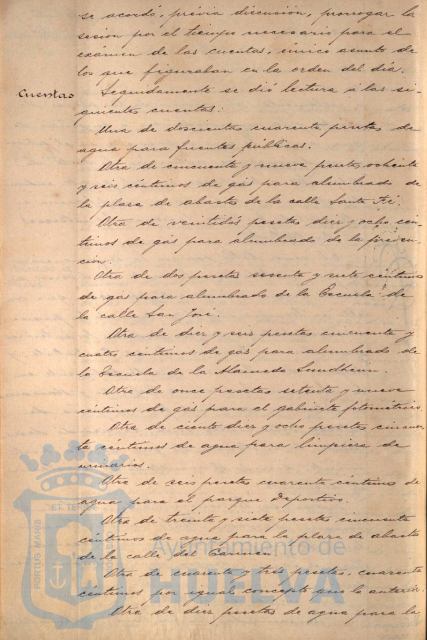 se acordó, previa discusión, prorrogar la
sesión por el tiempo necesario para el
exámen de las cuentas, único asunto de
los que figuraban en la orden del día.
Cuentas
Seguidamente se dió lectura á las si-
guientes cuentas:
Una de doscientas cuarenta pesetas de
agua para fuentes públicas.
Otra de cincuenta y nueve pesetas ochenta
y seis céntimos de gás para alumbrado de
la plaza de abastos de la calle Santa Fé.
Otra de veintidós pesetas diez y ocho cén-
timos de gás para alumbrado de la preven-
ción.
Otra de dos pesetas sesenta y siete céntimos
de gás para alumbrado de la Escuela de
la calle San José.
Otra de diez y seis pesetas cincuenta y
cuatro céntimos de gás para alumbrado de
la Escuela de la Alameda Sundheim.
Otra de once pesetas setenta y nueve
céntimos de gás para el gabinete fotométrico.
Otra de ciento diez y ocho pesetas cincuen-
ta céntimos de agua para limpieza de
urinarios.
Otra de seis pesetas cuarenta céntimos de
agua para el parque deportivo.
Otra de treinta y siete pesetas cincuenta
céntimos de agua para la plaza de abastos
de la calle del Carmen.
Otra de cuarenta y tres pesetas cuarenta
céntimos por igual concepto que la anterior.
Otra de diez pesetas de agua para la
Ayuntamiento de
HUELVA
PORTUS MARIS
ET TERRAE